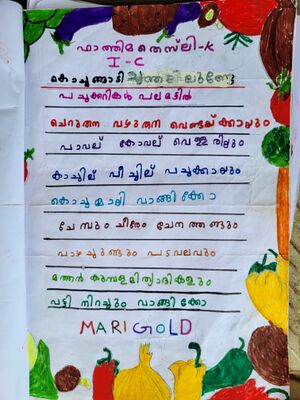 ഫാത്തിമതെസ്ലി-K
I-C
കൊച്ചുങ്ങാടി
പച്ചക്കറികൾ പലമടിൽ
ചെറുതന വഴുതന വെണ്ടയ്ക്കായും
പാവല് കോവല് വെള്ളരിയും
കാച്ചില് പീച്ചില് പച്ചക്കായും
കൊച്ചുമാളി വാങ്ങിക്കോ
ചേമ്പും ചീരേം ചേനത്തണ്ടും
വാഴച്ചുണ്ടും പടവലവും
മത്തൻ കുമ്പളമിത്യാദികളും
വട്ടി നിറച്ചും വാങ്ങിക്കോ
MARIGOLD